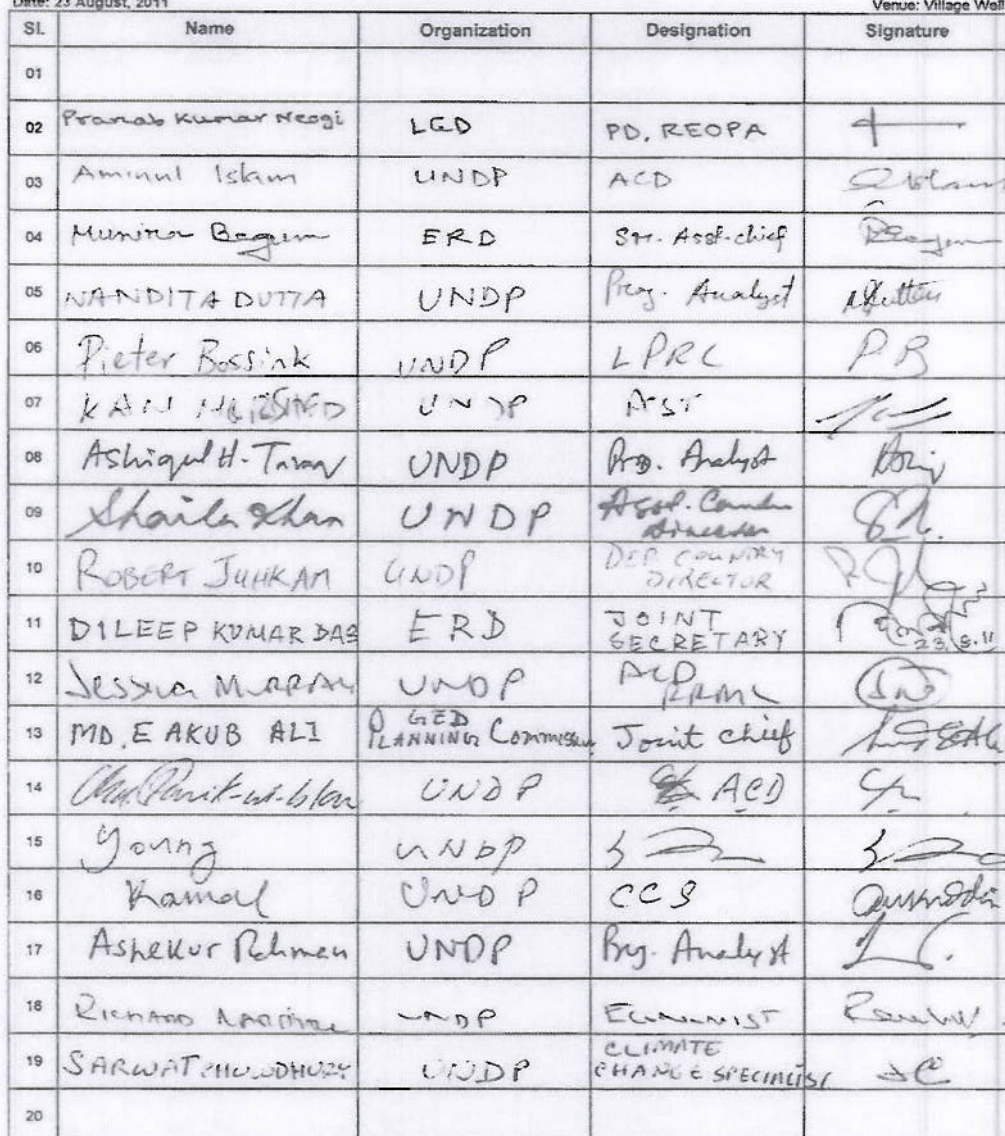 Date: 23 August, 2011 Venue: Village Well
SL Name Organization Designation Signature
01
02 Pranab Kumar Neogi LGD PD, REOPA
03 Aminul Islam UNDP ACD
04 Munira Begum ERD Sr. Asst. chief
05 NANDITA DUTTA UNDP Prog. Analyst
06 Pieter Bossink UNDP LPRC PB
07 KAN UNDP
08 Ashiqul H. UNDP Pro. Analyst
09 Shaila Khan UNDP Asst. Country
Director
10 ROBERT JUHKAM UNDP DEP COUNTRY
DIRECTOR
11 DILEEP KUMAR DAS ERD JOINT
SECRETARY 23.8.11
12 Jessica MURRAY UNDP ACD
13 MD. EAKUB ALI GED
PLANNING Commission Joint chief
14 UNDP ACD
15 Young UNDP
16 Kamal UNDP CCS
17 Ashekur Rahman UNDP Prog. Analyst
18 RICHARD UNDP ECONOMIST
19 SARWAT CHOWDHURY UNDP CLIMATE
CHANGE SPECIALIST SC
20